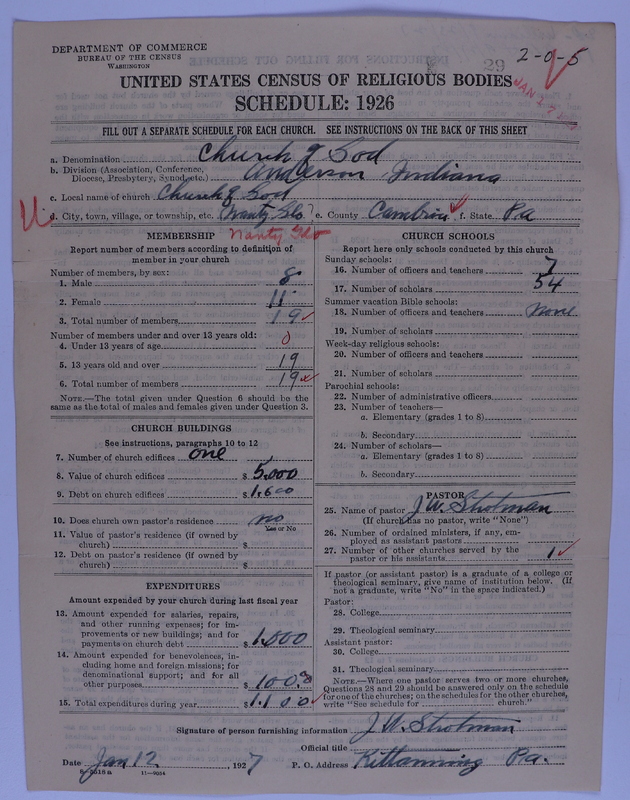 DEPARTMENT OF COMMERCE
BUREAU OF THE CENSUS
WASHINGTON
29
2-0-5
UNITED STATES CENSUS OF RELIGIOUS BODIES
SCHEDULE: 1926
JAN 27
FILL OUT A SEPARATE SCHEDULE FOR EACH CHURCH. SEE INSTRUCTIONS ON THE BACK OF THIS SHEET
a. Denomination Church of God
b. Division (Association, Conference, Diocese, Presbytery, Synod, etc.) Anderson, Indiana
c. Local name of church Church of God
d. City, town, village, or township, etc. (Nanty Glo) e. County Cambria f. State Pa
Nanty Glo
MEMBERSHIP
Report number of members according to definition of
member in your church
Number of members, by sex:
1. Male 8
2. Female 11
3. Total number of members 19
Number of members under and over 13 years old:
4. Under 13 years of age 0
5. 13 years old and over 19
6. Total number of members 19
NOTE.—The total given under Question 6 should be
same as the total of males and females given under Question 3.
CHURCH BUILDINGS
See instructions, paragraphs 10 to 12
7. Number of church edifices one
8. Value of church edifices $ 5,000
9. Debt on church edifices $ 1,600
10. Does church own pastor's residence no
Yes or No
11. Value of pastor's residence (if owned by
church) $
12. Debt on pastor's residence (if owned by
church) $
EXPENDITURES
Amount expended by your church during last fiscal year
13. Amount expended for salaries, repairs,
and other running expenses; for im-
provements or new buildings; and for
payments on church debt $ 1,000
14. Amount expended for benevolences, in-
cluding home and foreign missions; for
denominational support; and for all
other purposes $ 100.00
15. Total expenditures during year $ 1,100
CHURCH SCHOOLS
Report here only schools conducted by this church
Sunday schools:
16. Number of officers and teachers 7
17. Number of scholars 54
Summer vacation Bible schools:
18. Number of officers and teachers none
19. Number of scholars
Week-day religious schools:
20. Number of officers and teachers
21. Number of scholars
Parochial schools:
22. Number of administrative officers
23. Number of teachers—
a. Elementary (grades 1 to 8)
b. Secondary
24. Number of scholars—
a. Elementary (grades 1 to 8)
b. Secondary
PASTOR
25. Name of pastor J.W. Strotman
(If church has no pastor, write "None")
26. Number of ordained ministers, if any, em-
ployed as assistant pastors
27. Number of other churches served by the
pastor or his assistants 1
If pastor (or assistant pastor) is a graduate of a college or
theological seminary, give name of institution below. (If
not a graduate, write "No" in the space indicated.)
Pastor:
28. College
29. Theological seminary
Assistant pastor:
30. College
31. Theological seminary
NOTE.—Where one pastor serves two or more churches,
Questions 28 and 29 should be answered only on the schedule
for one of the churches; on the schedules for the other churches,
write "See schedule for church."
Signature of person furnishing information J.W. Strotman
Official title
Date Jan 12, 1927 P. O. Address Kittanning Pa.
8-5018a 11-9034